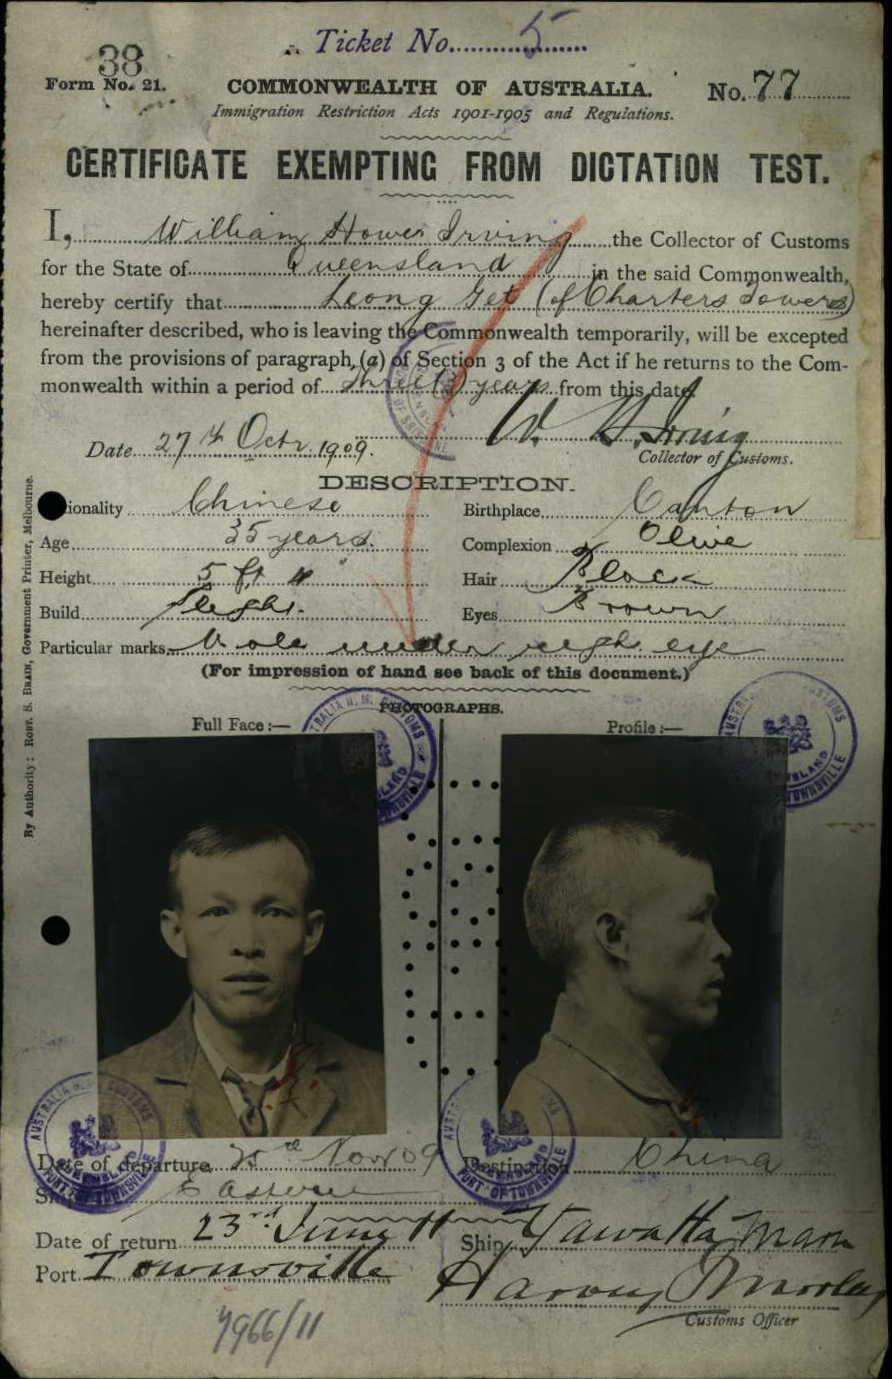 Ticket No. 5
38
Form No. 21.
COMMONWEALTH OF AUSTRALIA.
No. 77
Immigration Restriction Acts 1901-1905 and Regulations.
CERTIFICATE EXEMPTING FROM DICTATION TEST.
I, William Howes Irving the Collector of Customs
for the State of Queensland in the said Commonwealth,
hereby certify that Leong Get (of Charters Towers)
hereinafter described, who is leaving the Commonwealth temporarily, will be excepted
from the provisions of paragraph (a) of Section 3 of the Act if he returns to the Com-
monwealth within a period of three (3) years from this date.
W. H. Irving
Date 27th Octr. 1909.
Collector of Customs.
DESCRIPTION.
ionality Chinese Birthplace Canton
Age 35 years. Complexion Olive
Height 5 ft Hair Black
Build Slight. Eyes Brown
Particular marks Mole under right eye
(For impression of hand see back of this document.)
PHOTOGRAPHS.
Full Face :— Profile :—
By Authority: ROBT. S. BRAIN, Government Printer, Melbourne.
AUSTRALIA H. M. CUSTOMS
QUEENSLAND
PORT OF TOWNSVILLE
Date of departure Nov 09 Destination China
Eastern
Date of return 23rd June 11 Ship Yawata Maru
Port Townsville
Customs Officer
7966/11